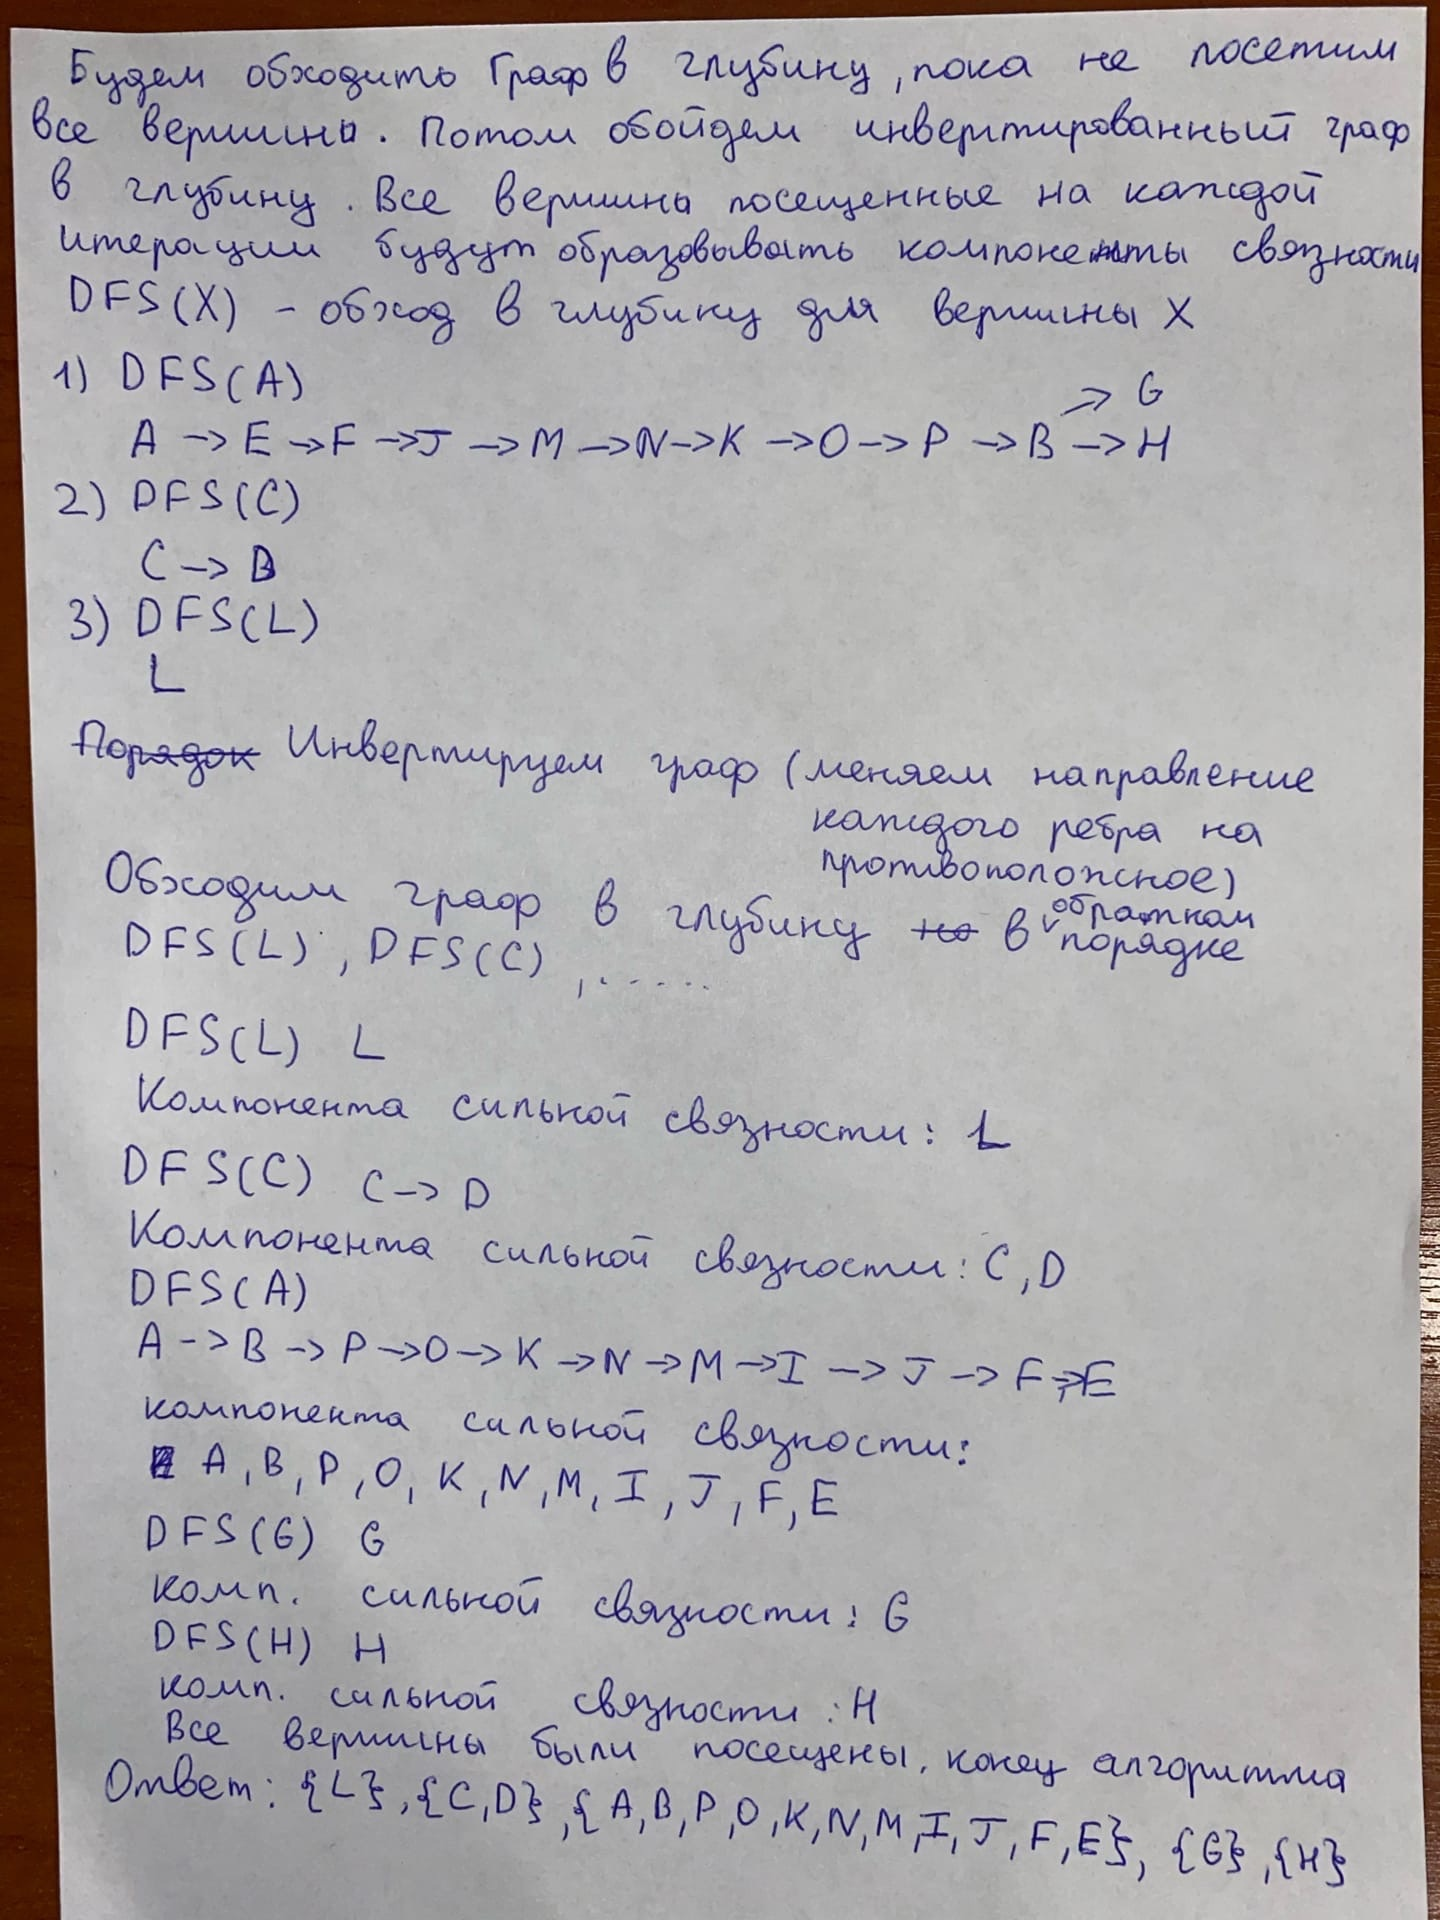 Будем обходить Граф в глубину, пока не посетим
все вершины. Потом обойдем инвертированный граф
в глубину. Все вершины посещенные на каждой
итерации будут образовывать компоненты связности
DFS(X) - обход в глубину для вершины X
1) DFS(A)
→ G
A → E → F → J → M → N → K → O → P → B → H
2) DFS(C)
C → D
3) DFS(L)
L
Порядок Инвертируем граф (меняем направление
каждого ребра на
противоположное)
Обходим граф в глубину в обратном порядке
DFS(L), DFS(C), ......
DFS(L) L
Компонента сильной связности: L
DFS(C) C → D
Компонента сильной связности: C, D
DFS(A)
A → B → P → O → K → N → M → I → J → F → E
компонента сильной связности:
A, B, P, O, K, N, M, I, J, F, E
DFS(G) G
комп. сильной связности: G
DFS(H) H
комп. сильной связности: H
Все вершины были посещены, конец алгоритма
Ответ: {L}, {C, D}, {A, B, P, O, K, N, M, I, J, F, E}, {G}, {H}